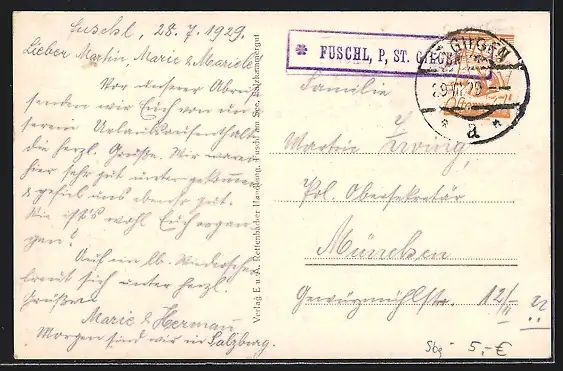 Fuschl, 28.7.1929.
Lieber Martin, Marie & Mariele
Vor unserer Abreise
senden wir Euch von un-
serem Urlaubsaufenthalt
die herzl. Grüße. Wir waren
hier sehr gut untergekommen
& gefiel uns ebenso gut.
Wie ist's wohl Euch ergan-
gen?
Auf ein lb. Wiedersehen
freut sich unter herzl.
Grüßen
Marie & Hermann
Morgen sind wir in Salzburg.
Verlag E. u. A. Rettenbacher Handlung, Fuschl am See, Salzkammergut
* FUSCHL, P, ST. GILGEN
ST. GILGEN
29 VII 29
* a *
Familie
Martin
Pol. Obersekretär
München
Gewürzmühlstr. 12/II
Sbg 5,-€